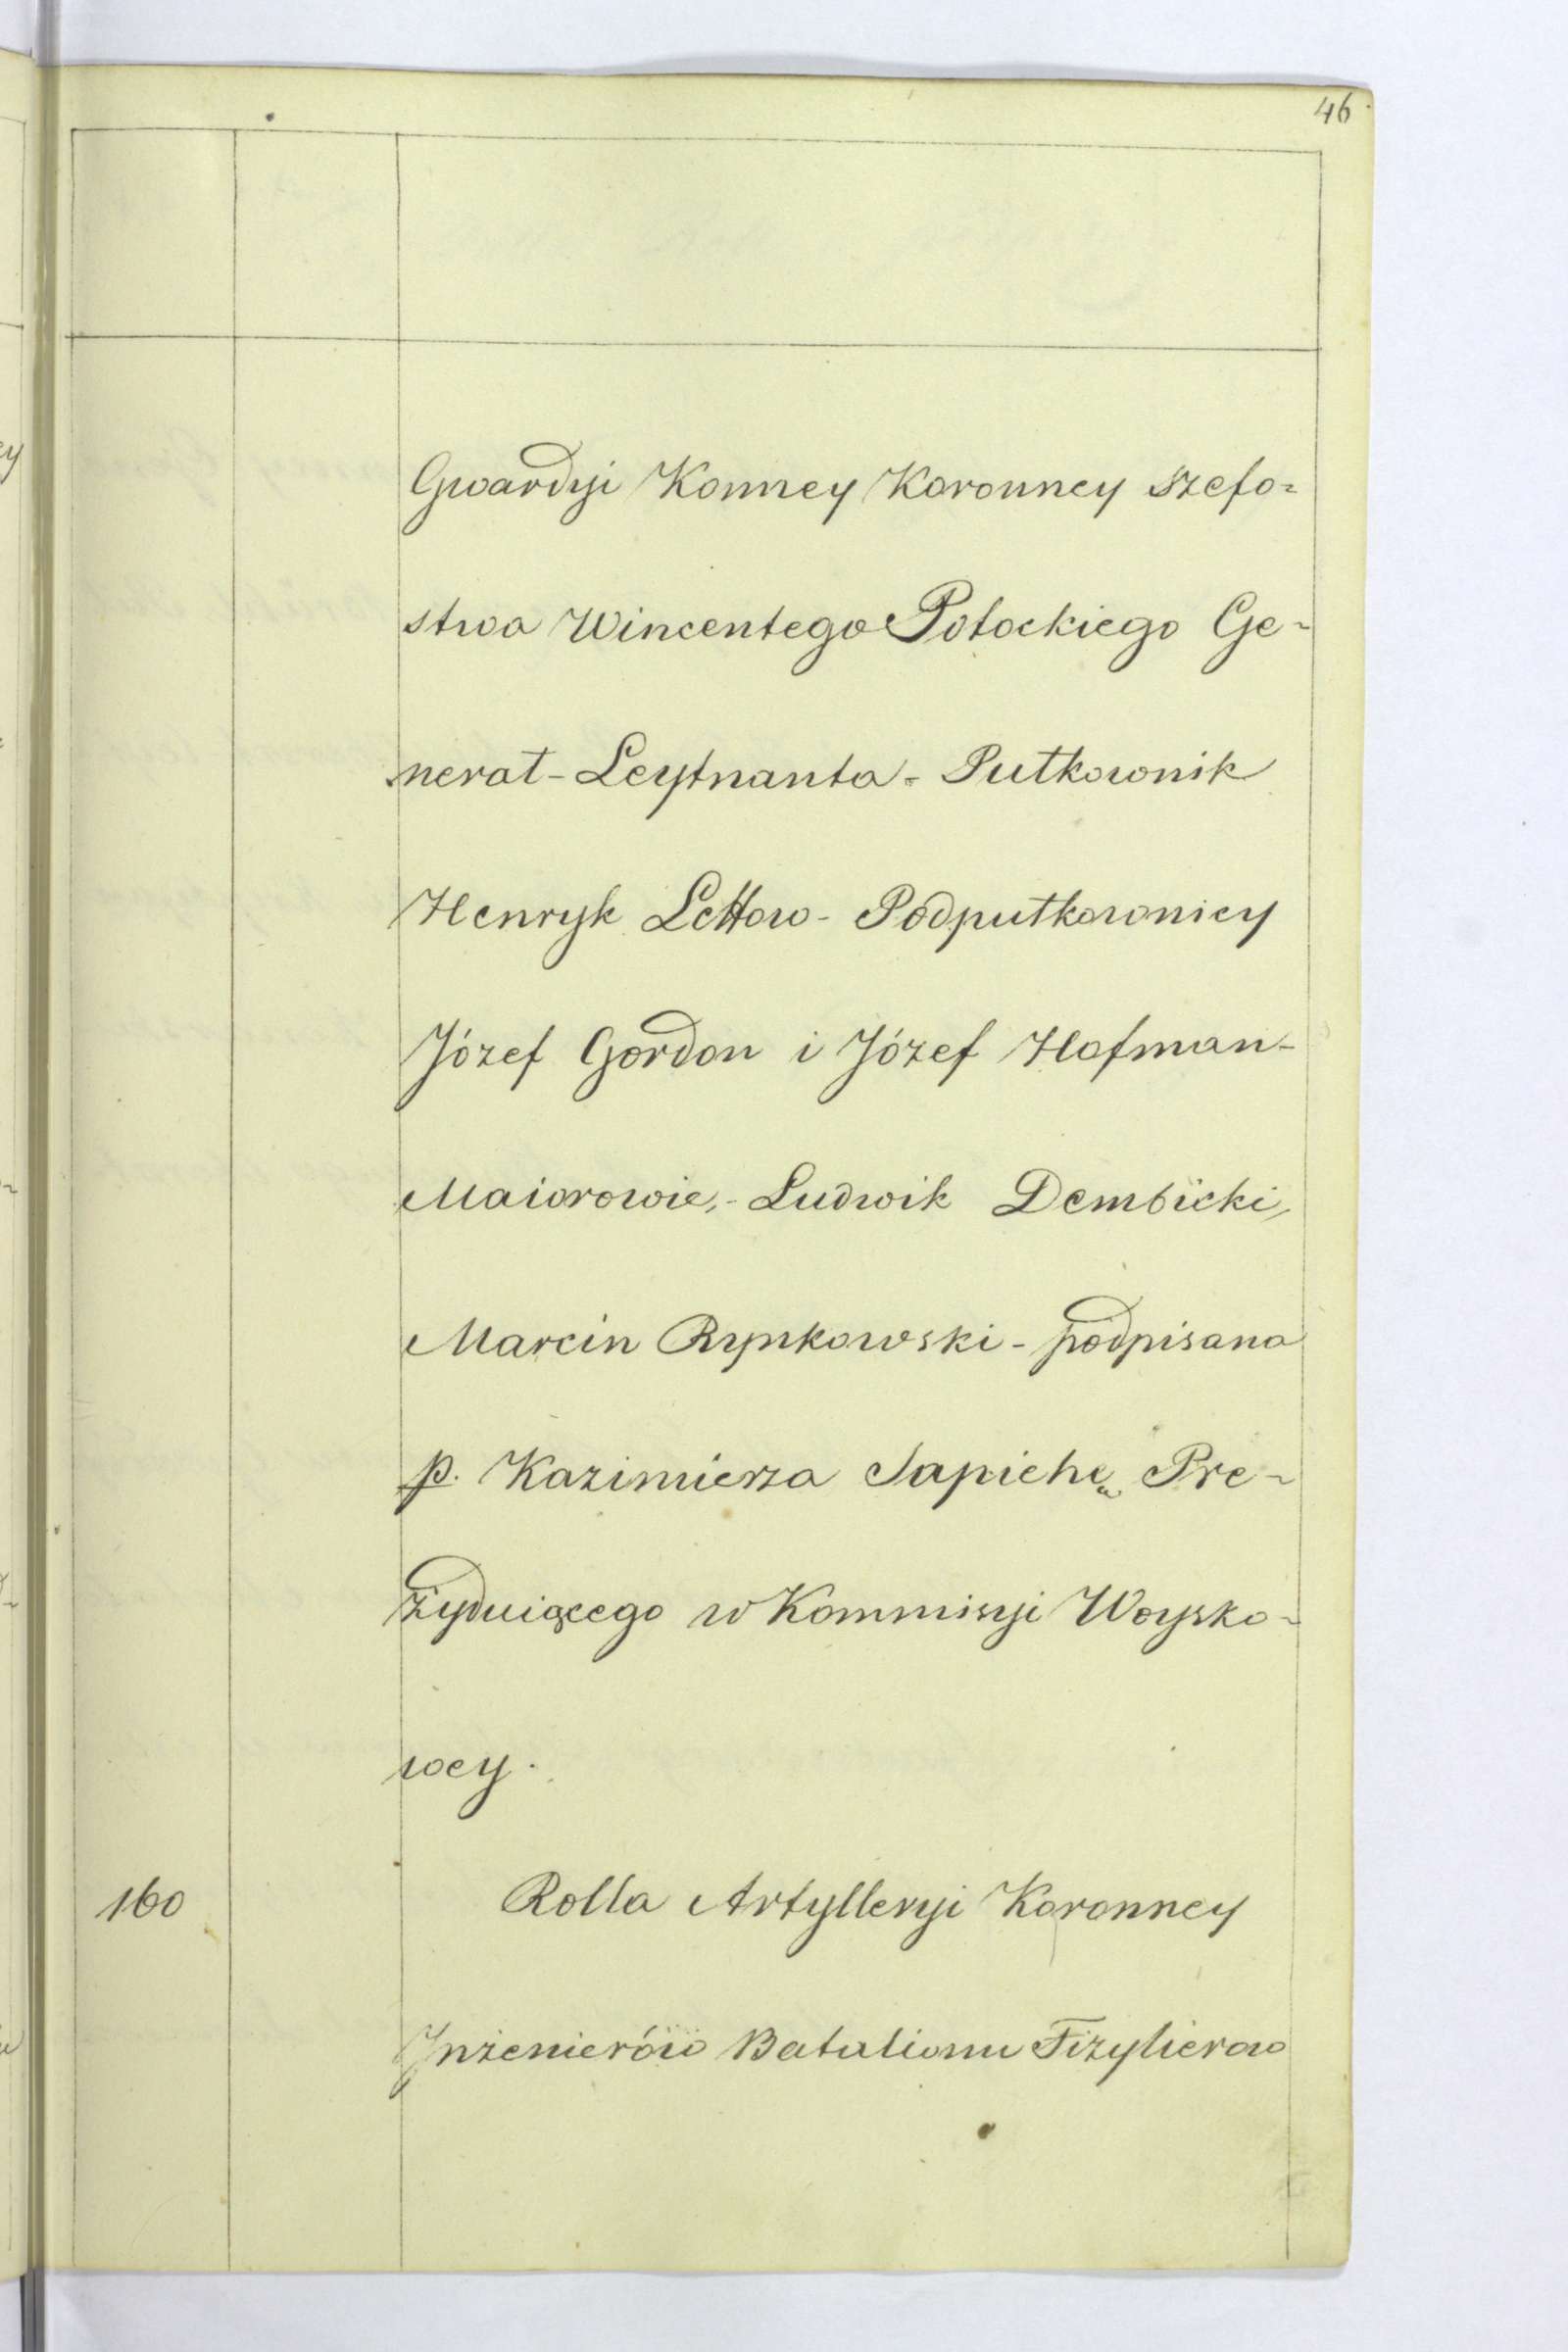 46
Gwardyi Konney Koronney Szefo=
stwa Wincentego Potockiego Ge-
nerał-Leytnanta - Pułkownik
Henryk Lettow - Podpułkownicy
Józef Gordon i Józef Hofman-
Maiorowie, - Ludwik Dembicki,
Marcin Rynkowski - podpisana
p. Kazimierza Sapiehę Pre-
zyduiącego w Kommisyi Woysko-
wey.
160 Rolla Artylleryi Koronney
Inżenierów Batalionu Fizylierow